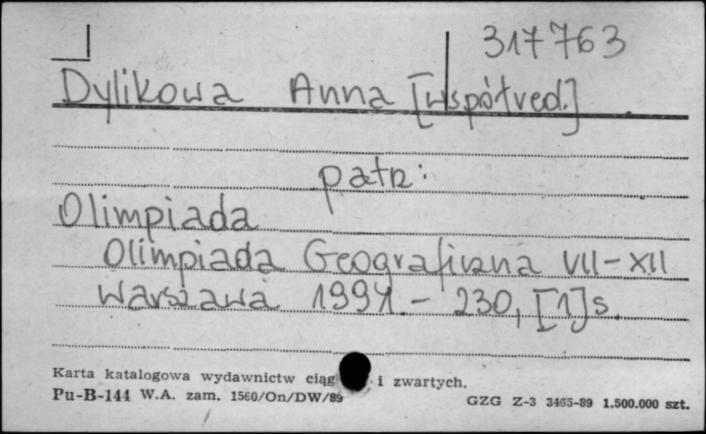 317763
Dylikowa Anna [współred.]
patrz:
Olimpiada
Olimpiada Geograficzna VII-XII
Warszawa 1991.- 230, [1]s.
Karta katalogowa wydawnictw ciąg i zwartych.
Pu-B-144 W.A. zam. 1560/On/DW/89
GZG Z-3 3465-89 1.500.000 szt.